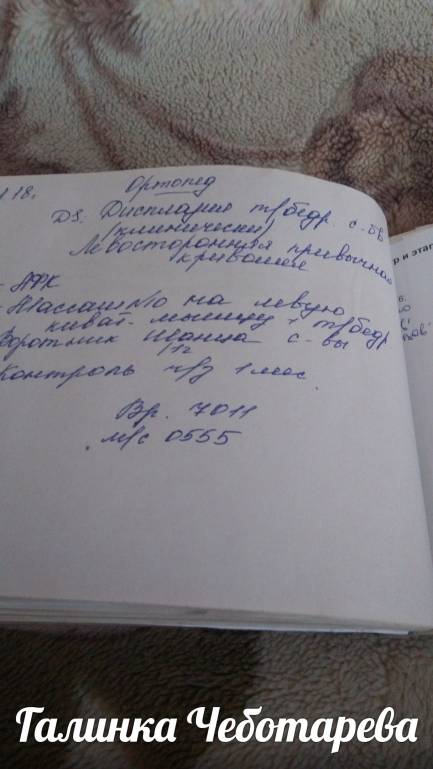 18.
Ортопед
DS: Дисплазия т/бедр. с-ов
(клинически)
Левосторонняя привычная
кривошея
- ЛФК
- Массаж №10 на левую
киват. мышцу + т/бедр
Воротник Шанца с-вы
Контроль ч/з 1 мес.
Вр. 7011
м/с 0555
р и этап
Галинка Чеботарева